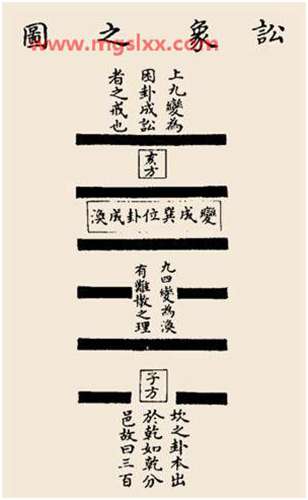 www.mgslxx.com
訟象之圖
上九變為
困卦成訟
者之戒也
亥方
變成巽位卦成渙
九四變為渙
有離散之理
子方
坎之卦本出
於乾如乾分
邑故曰三百